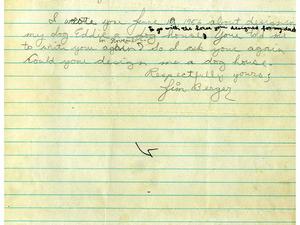 I wrote you June 19 1956 about designing
to go with the house you designed for my dad
my dog Eddie a dog house. You told me
in November
to write you again so I ask you again.
Could you design me a dog house.
Respectfully yours,
Jim Berger